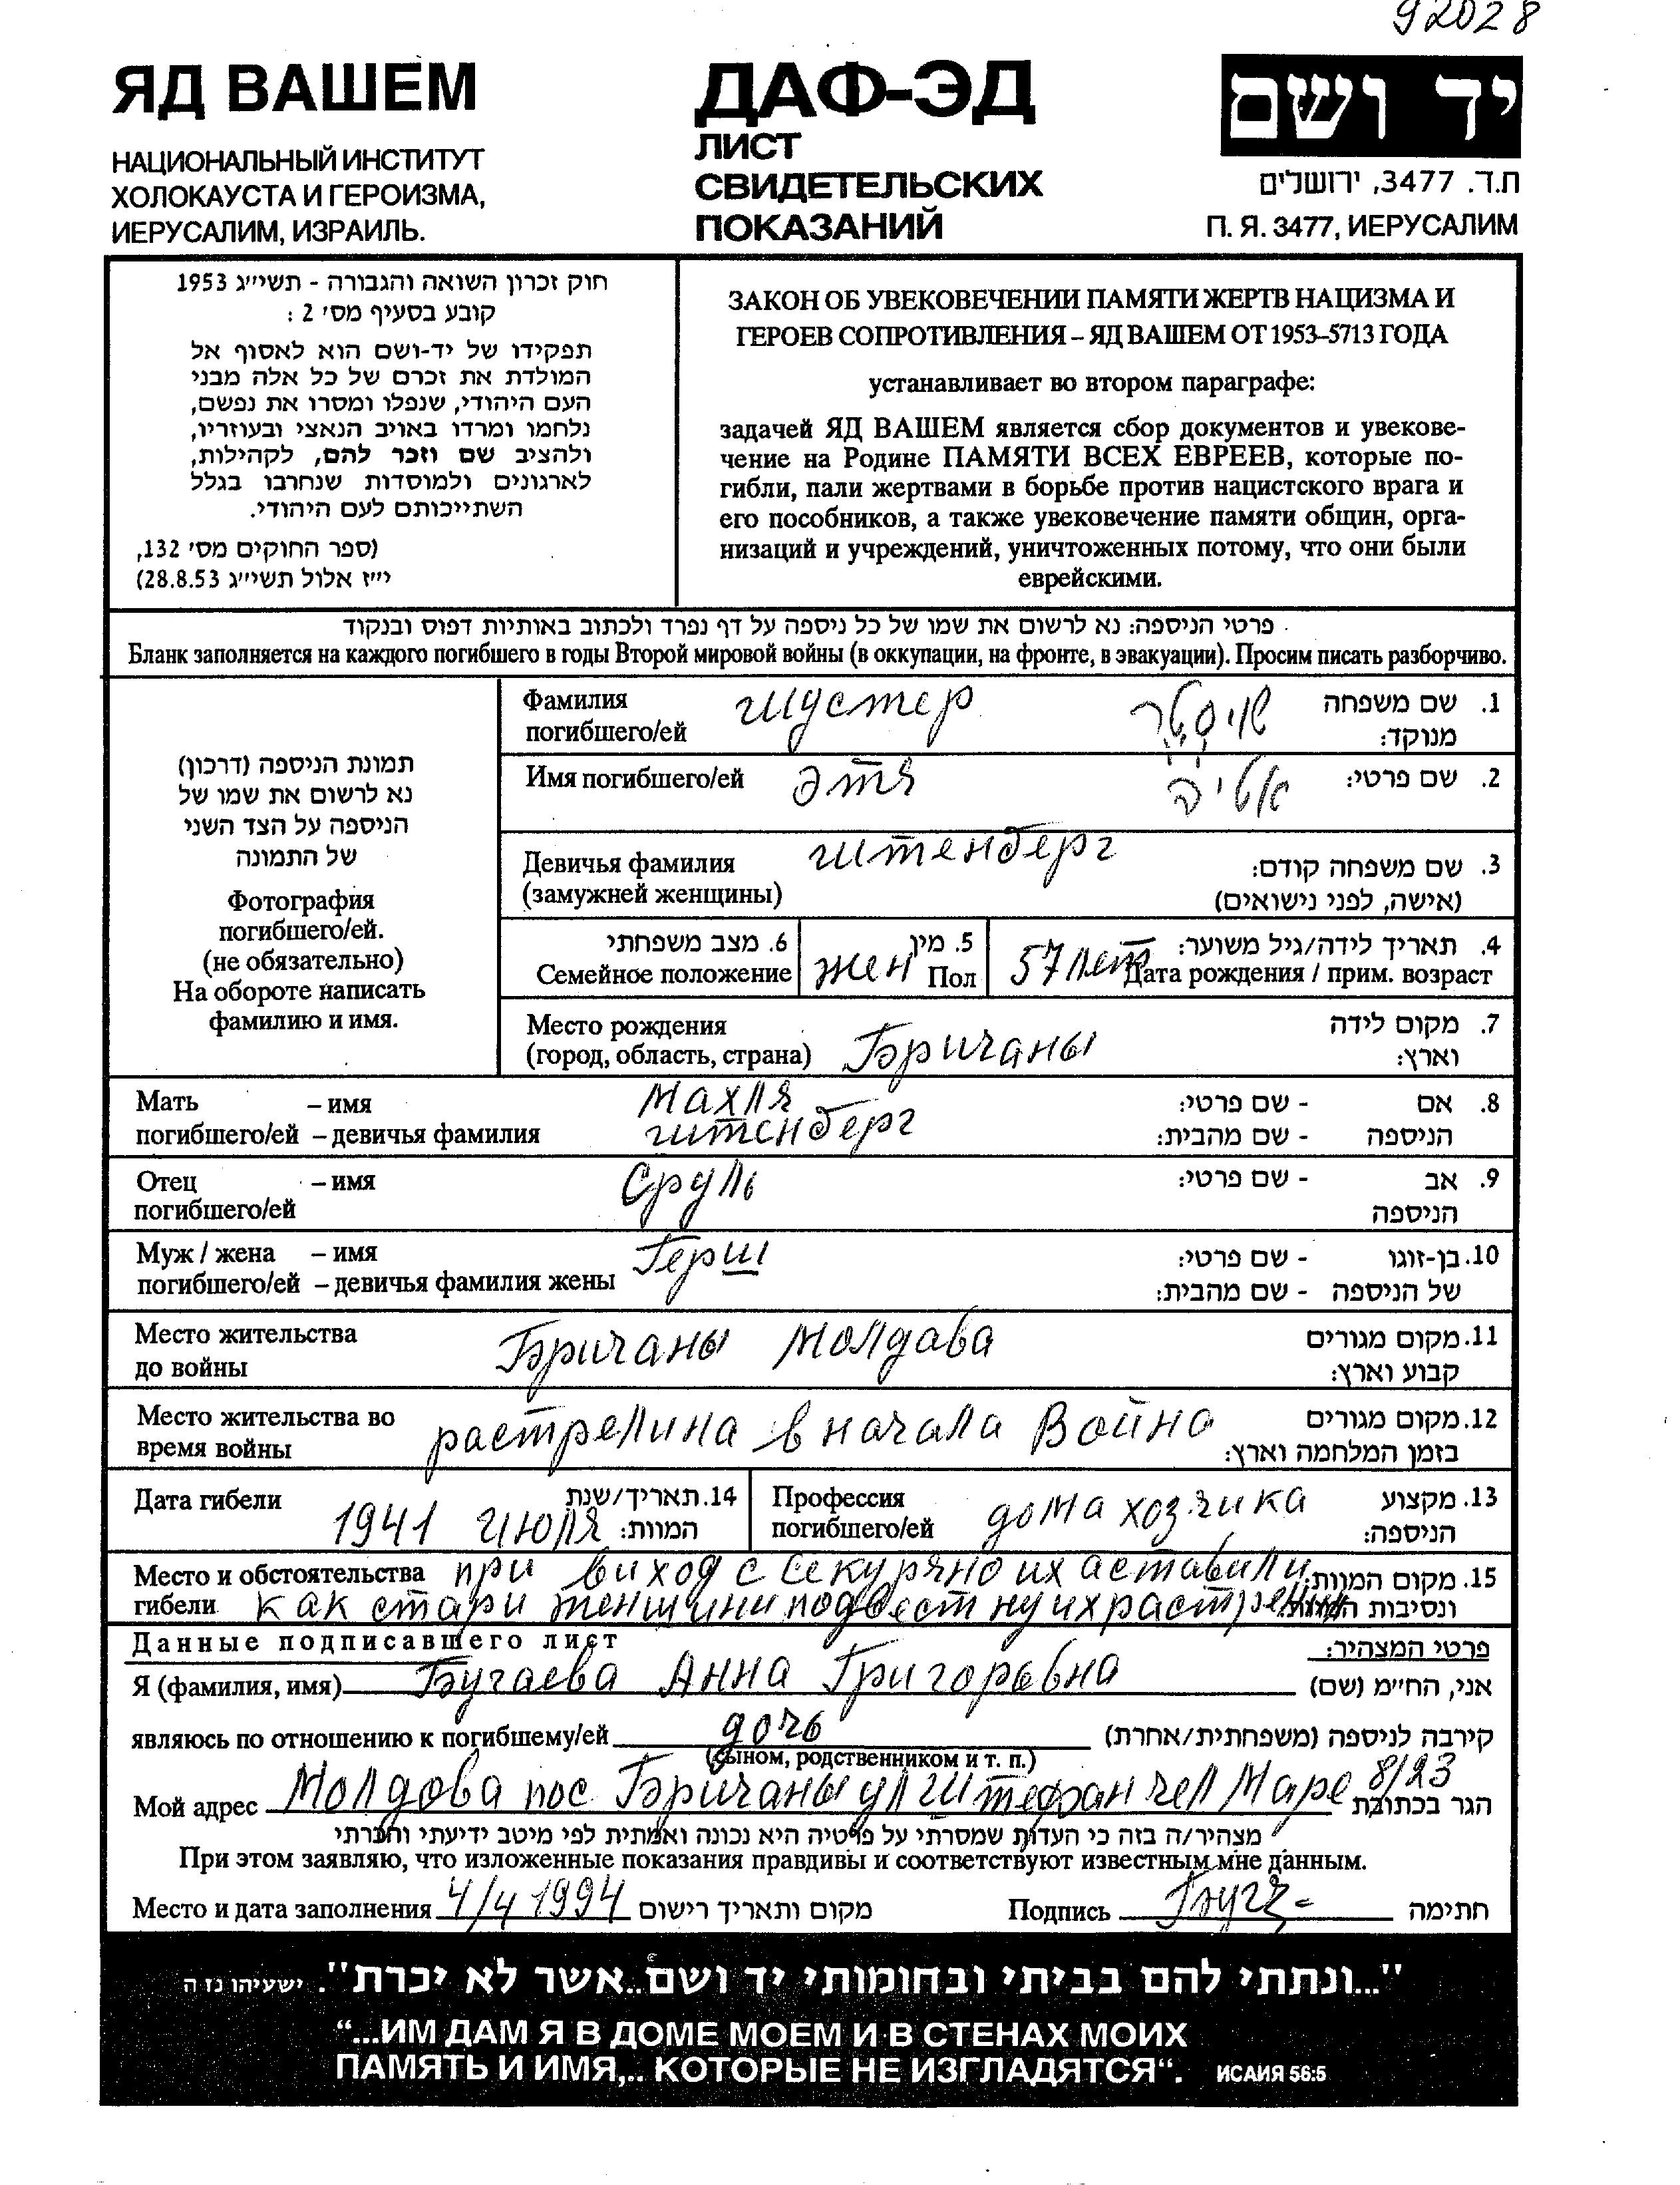 92028
ЯД ВАШЕМ
НАЦИОНАЛЬНЫЙ ИНСТИТУТ
ХОЛОКАУСТА И ГЕРОИЗМА,
ИЕРУСАЛИМ, ИЗРАИЛЬ.
ДАФ-ЭД
ЛИСТ
СВИДЕТЕЛЬСКИХ
ПОКАЗАНИЙ
יד ושם
ת.ד. 3477, ירושלים
П. Я. 3477, ИЕРУСАЛИМ
חוק זכרון השואה והגבורה - תשי״ג 1953
קובע בסעיף מס׳ 2 :
תפקידו של יד-ושם הוא לאסוף אל
המולדת את זכרם של כל אלה מבני
העם היהודי, שנפלו ומסרו את נפשם,
נלחמו ומרדו באויב הנאצי ובעוזריו,
ולהציב שם וזכר להם, לקהילות,
לארגונים ולמוסדות שנחרבו בגלל
השתייכותם לעם היהודי.
(ספר החוקים מס׳ 132,
י״ז אלול תשי״ג 28.8.53)
ЗАКОН ОБ УВЕКОВЕЧЕНИИ ПАМЯТИ ЖЕРТВ НАЦИЗМА И
ГЕРОЕВ СОПРОТИВЛЕНИЯ – ЯД ВАШЕМ ОТ 1953–5713 ГОДА
устанавливает во втором параграфе:
задачей ЯД ВАШЕМ является сбор документов и увекове-
чение на Родине ПАМЯТИ ВСЕХ ЕВРЕЕВ, которые по-
гибли, пали жертвами в борьбе против нацистского врага и
его пособников, а также увековечение памяти общин, орга-
низаций и учреждений, уничтоженных потому, что они были
еврейскими.
פרטי הניספה: נא לרשום את שמו של כל ניספה על דף נפרד ולכתוב באותיות דפוס ובנקוד
Бланк заполняется на каждого погибшего в годы Второй мировой войны (в оккупации, на фронте, в эвакуации). Просим писать разборчиво.
תמונת הניספה (דרכון)
נא לרשום את שמו של
הניספה על הצד השני
של התמונה
Фотография
погибшего/ей.
(не обязательно)
На обороте написать
фамилию и имя.
Фамилия шустер שוסטר 1. שם משפחה
погибшего/ей מנוקד:
Имя погибшего/ей Этя אטיה 2. שם פרטי:
Девичья фамилия штенберг 3. שם משפחה קודם:
(замужней женщины) (אישה, לפני נישואים)
6. מצב משפחתי 5. מין 4. תאריך לידה/גיל משוער:
Семейное положение жен Пол 57 лет Дата рождения / прим. возраст
Место рождения 7. מקום לידה
(город, область, страна) Бричаны וארץ:
Мать – имя Махля 8. אם - שם פרטי:
погибшего/ей – девичья фамилия штенберг הניספה - שם מהבית:
Отец – имя Сруль 9. אב - שם פרטי:
погибшего/ей הניספה
Муж / жена – имя Герш 10. בן-זוגו - שם פרטי:
погибшего/ей – девичья фамилия жены של הניספה - שם מהבית:
Место жительства Бричаны Молдава 11. מקום מגורים
до войны קבוע וארץ:
Место жительства во растрелина в начала Война 12. מקום מגורים
время войны בזמן המלחמה וארץ:
Дата гибели 1941 июля 14. תאריך/שנת המוות:
Профессия дома хозяика 13. מקצוע
погибшего/ей הניספה:
Место и обстоятельства при виход с Секуряно их аставили 15. מקום המוות
гибели как стари женщини подвест ну их ונסיבות
Данные подписавшего лист פרטי המצהיר:
Я (фамилия, имя) Бугаева Анна Григоровна אני, הח״מ (שם)
являюсь по отношению к погибшему/ей дочь קירבה לניספה (משפחתית/אחרת)
(сыном, родственником и т. п.)
Мой адрес Молдова пос Бричаны ул Штефан чел Маре 8/23 הגר בכתובת
מצהיר/ה בזה כי העדות שמסרתי על פרטיה היא נכונה ואמתית לפי מיטב ידיעתי והכרתי
При этом заявляю, что изложенные показания правдивы и соответствуют известным мне данным.
Место и дата заполнения 4/4 1994 מקום ותאריך רישום Подпись חתימה
"...ונתתי להם בביתי ובחומותי יד ושם...אשר לא יכרת". ישעיהו נז ה
“...ИМ ДАМ Я В ДОМЕ МОЕМ И В СТЕНАХ МОИХ
ПАМЯТЬ И ИМЯ,.. КОТОРЫЕ НЕ ИЗГЛАДЯТСЯ“. ИСАИЯ 56:5